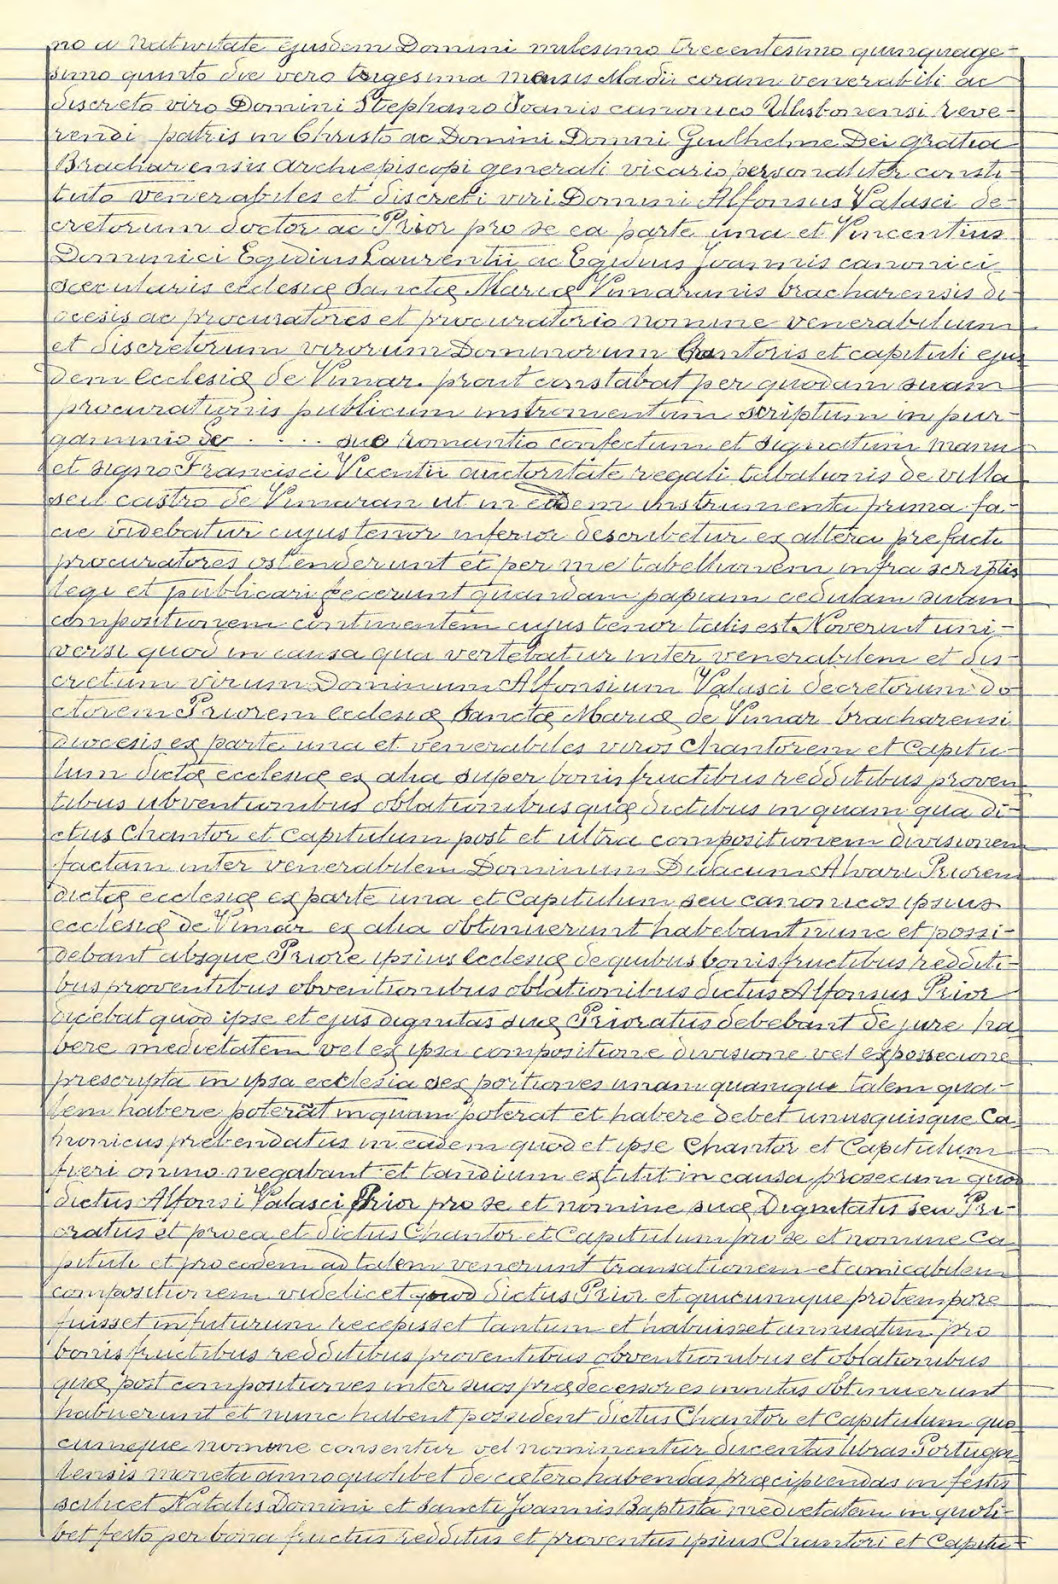 no a Nativitate ejusdem Domini milesimo trecentesimo quinquage-
simo quinto die vero trigesima mensis Madii coram venerabili ac
discreto viro Domini Stephano Joanis canonico Ulisbonensi reve-
rendi patris in Christo ac Domini Domni Guilhelme Dei gratia
Bracharensis Archiepiscopi generali vicario personaliter consti-
tuto venerabiles et discreti viri Domini Alfonsus Valasci de-
cretorum doctor ac Prior pro se ea parte una et Vincentius
Dominici Egidius Laurentii ac Egidius Joannis canonici
secularis eclesiæ Sanctæ Mariæ Vimaranis bracharensis di-
ocesis ac procuratores et procuratorio nomine venerabilium
et discretorum virorum Dominorum Cantoris et capituli ejus
dem Ecclesiæ de Vimar. prout constabat per quodam suam
procurationis publicum instromentum scriptum in pur-
gaminio de . . . . suo romantio confectum et signatum manu
et signo Francisci Vicentii auctoritate regali tabalionis de villa
seu castro de Vimaran ut in eodem instrumenta prima fa-
cie videbatur cujus tenor inferior describetur ex altera prefacti
procuratores ostenderunt et per me tabellionem infra scriptis
legi et publicari fecerunt quandam papiam cedulam suam
compositionem continentem cujus tenor talis est Noverint uni-
versi quod in causa qua vertebatur inter venerabilem et dis-
cretum virum Dominum Alfonsium Valasci decretorum do
ctorem Priorem ecclesiæ Sanctæ Mariæ de Vimar bracharensi
diocesis ex parte una et venerabiles viros Chantorem et Capitu-
lum dictæ ecclesiæ ex alia super bonis fructibus redditibus proven
tibus ubventionibus oblationibus quæ dictibus in quam qua di-
ctus Chantor et Capitulum post et ultra compositionem divisionem
factam inter venerabilem Dominum Didacum Alvari Priorem
dictæ ecclesiæ ex parte una et Capitulum seu canonicos ipsius
ecclesiæ de Vimar ex alia obtinuerunt habebant nunc et possi-
debant absque Priore ipsius Ecclesiæ de quibus bonis fructibus redditi-
bus proventibus obventionibus oblationibus dictus Alfonsus Prior
dicebat quod ipse et ejus dignitas suæ Prioratus debebant de jure ha
bere medietatem vel ex ipsa compositione divisione vel expossecione
prescripta in ipsa ecclesia sex portiones unam quamque talem qua-
lem habere poterat in quam poterat et habere debet unusquisque Ca
nonicus prebendatus in eadem quod et ipse Chantor et Capitulum
fieri omino negabant et tandium extitit in causa prosecum quod
dictus Alfonsi Valasci Prior pro se et nomine suæ Dignitatis seu Pri-
oratus et pro ea et dictus Chantor et Capitulum pro se et nomine Ca
pituli et pro eodem ad talem venerunt transationem et amicabilem
compositionem videlicet quod dictus Prior et quicumque pro tempore
fuisset in futurum recepisset tantum et habuisset annuatim pro
bonis fructibus redditibus proventibus obventionibus et oblationibus
quæ post compositiones inter suos prædecessores innitas obtinuerunt
habuerunt et nunc habent possident dictus Chantor et Capitulum quo
cumque nomine consentur vel nominentur ducentas libras Portuga
lensis moneta anno quolibet de cætero habendas præcipiendas in festis
scilicet Natalis Domini et Sancti Joannis Baptista medietatem in quoli-
bet festo per bona fructus redditus et proventus ipsius Chantori et Capitu-